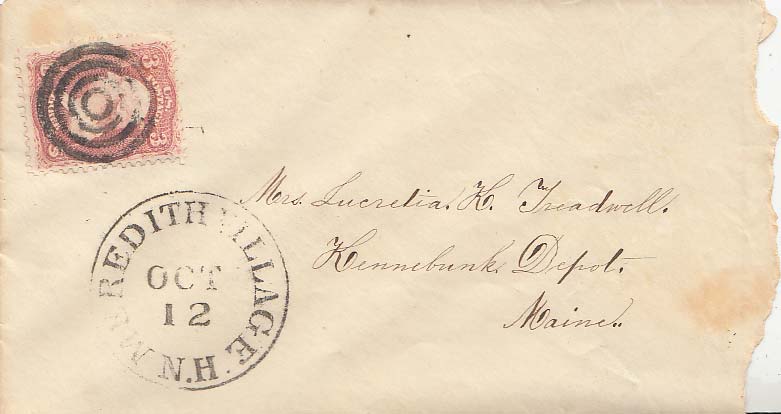 3 3
U.S. POSTAGE
MEREDITH VILLAGE. N.H.
OCT
12
Mrs. Lucretia. H. Treadwell.
Kennebunk Depot.
Maine.